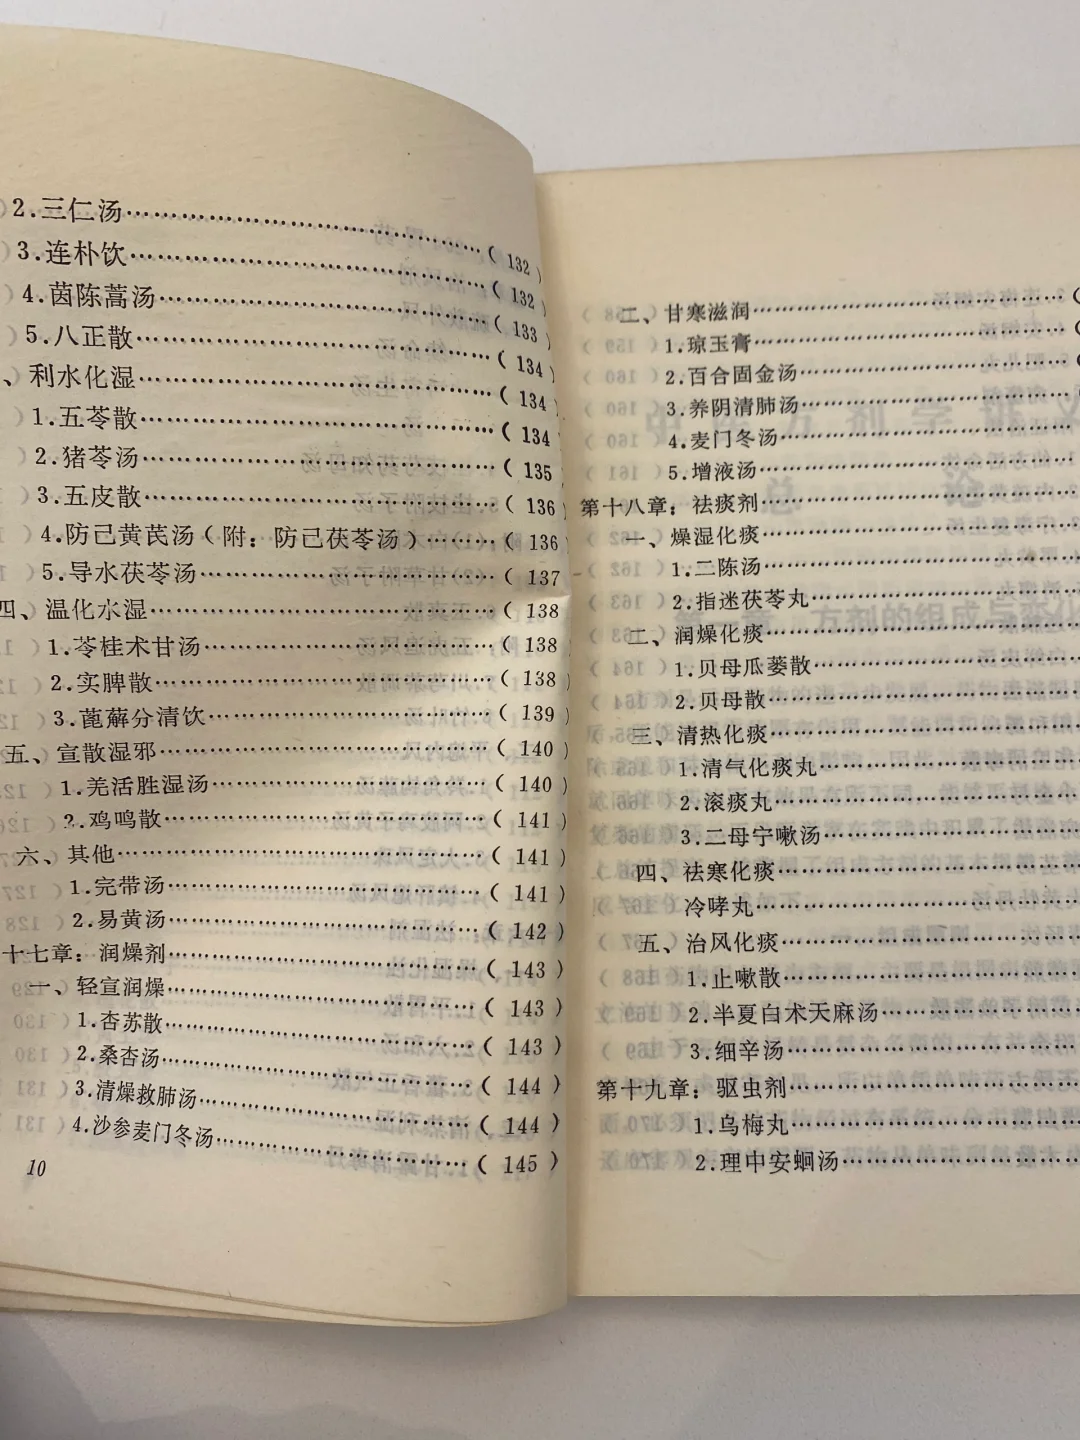 2.三仁汤……………………………………( 132 )
3.连朴饮……………………………………( 132 )
4.茵陈蒿汤…………………………………( 133 )
5.八正散……………………………………( 134 )
、利水化湿…………………………………( 134 )
1.五苓散……………………………………( 134 )
2.猪苓汤……………………………………( 135 )
3.五皮散……………………………………( 136 )
4.防己黄芪汤(附:防己茯苓汤)………( 136 )
5.导水茯苓汤………………………………( 137
四、温化水湿………………………………( 138
1.苓桂术甘汤………………………………( 138 )
2.实脾散……………………………………( 138 )
3.萆薢分清饮………………………………( 139 )
五、宣散湿邪………………………………( 140 )
1.羌活胜湿汤………………………………( 140 )
2.鸡鸣散……………………………………( 141 )
六、其他……………………………………( 141 )
1.完带汤……………………………………( 141 )
2.易黄汤……………………………………( 142 )
十七章:润燥剂……………………………( 143 )
一、轻宣润燥………………………………( 143 )
1.杏苏散……………………………………( 143 )
2.桑杏汤……………………………………( 144 )
3.清燥救肺汤………………………………( 144 )
4.沙参麦门冬汤……………………………( 145 )
10
二、甘寒滋润………………………………(
1.琼玉膏……………………………………(
2.百合固金汤………………………………
3.养阴清肺汤………………………………
4.麦门冬汤…………………………………
5.增液汤……………………………………
第十八章:祛痰剂…………………………
一、燥湿化痰………………………………
1.二陈汤……………………………………
2.指迷茯苓丸………………………………
二、润燥化痰………………………………
1.贝母瓜蒌散………………………………
2.贝母散……………………………………
三、清热化痰………………………………
1.清气化痰丸………………………………
2.滚痰丸……………………………………
3.二母宁嗽汤………………………………
四、祛寒化痰………………………………
冷哮丸………………………………………
五、治风化痰………………………………
1.止嗽散……………………………………
2.半夏白术天麻汤…………………………
3.细辛汤……………………………………
第十九章:驱虫剂…………………………
1.乌梅丸……………………………………
2.理中安蛔汤………………………………